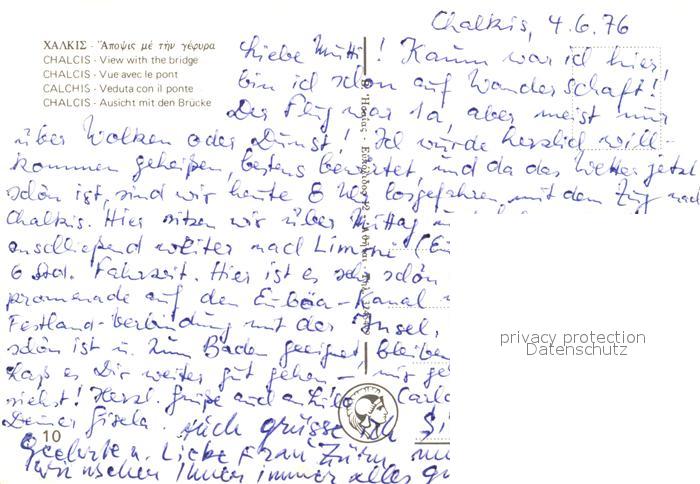 Chalkis, 4.6.76
ΧΑΛΚΙΣ - Ἄποψις μέ τήν γέφυρα
CHALCIS - View with the bridge
CHALCIS - Vue avec le pont
CALCHIS - Veduta con il ponte
CHALCIS - Ausicht mit den Brücke
Liebe Mutti! Kaum war ich hier,
bin ich schon auf Wanderschaft!
Der Flug war 1a, aber meist nur
über Wolken oder Dunst! Ich wurde herzlich will-
kommen geheißen, bestens bewirtet, und da das Wetter jetzt
schön ist, sind wir heute 8 Uhr losgefahren mit dem Zug nach
Chalkis. Hier sitzen wir über Mittag
anschliessend weiter nach Limni
6 Std. Fahrzeit. Hier ist es sehr schön
promenade auf den Euböa-Kanal
Festland-Verbindung mit der Insel,
schön ist u. zum Baden geeignet, bleiben
Dass es Dir weiter gut gehen - mir
siehst! Herzl. Grüße auch an
Deine Gisela. Auch grüsse ich
Geehrte u. liebe Frau
wir wünschen Ihnen immer alles
10
privacy protection
Datenschutz